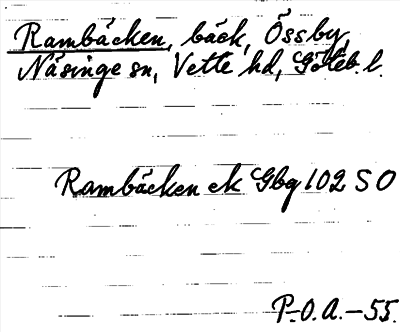 Rambäcken, bäck, Össby,
Näsinge sn, Vette hd, Göteb. l.
Rambäcken ek Gbg 102 S O
P.-O. A. -55.